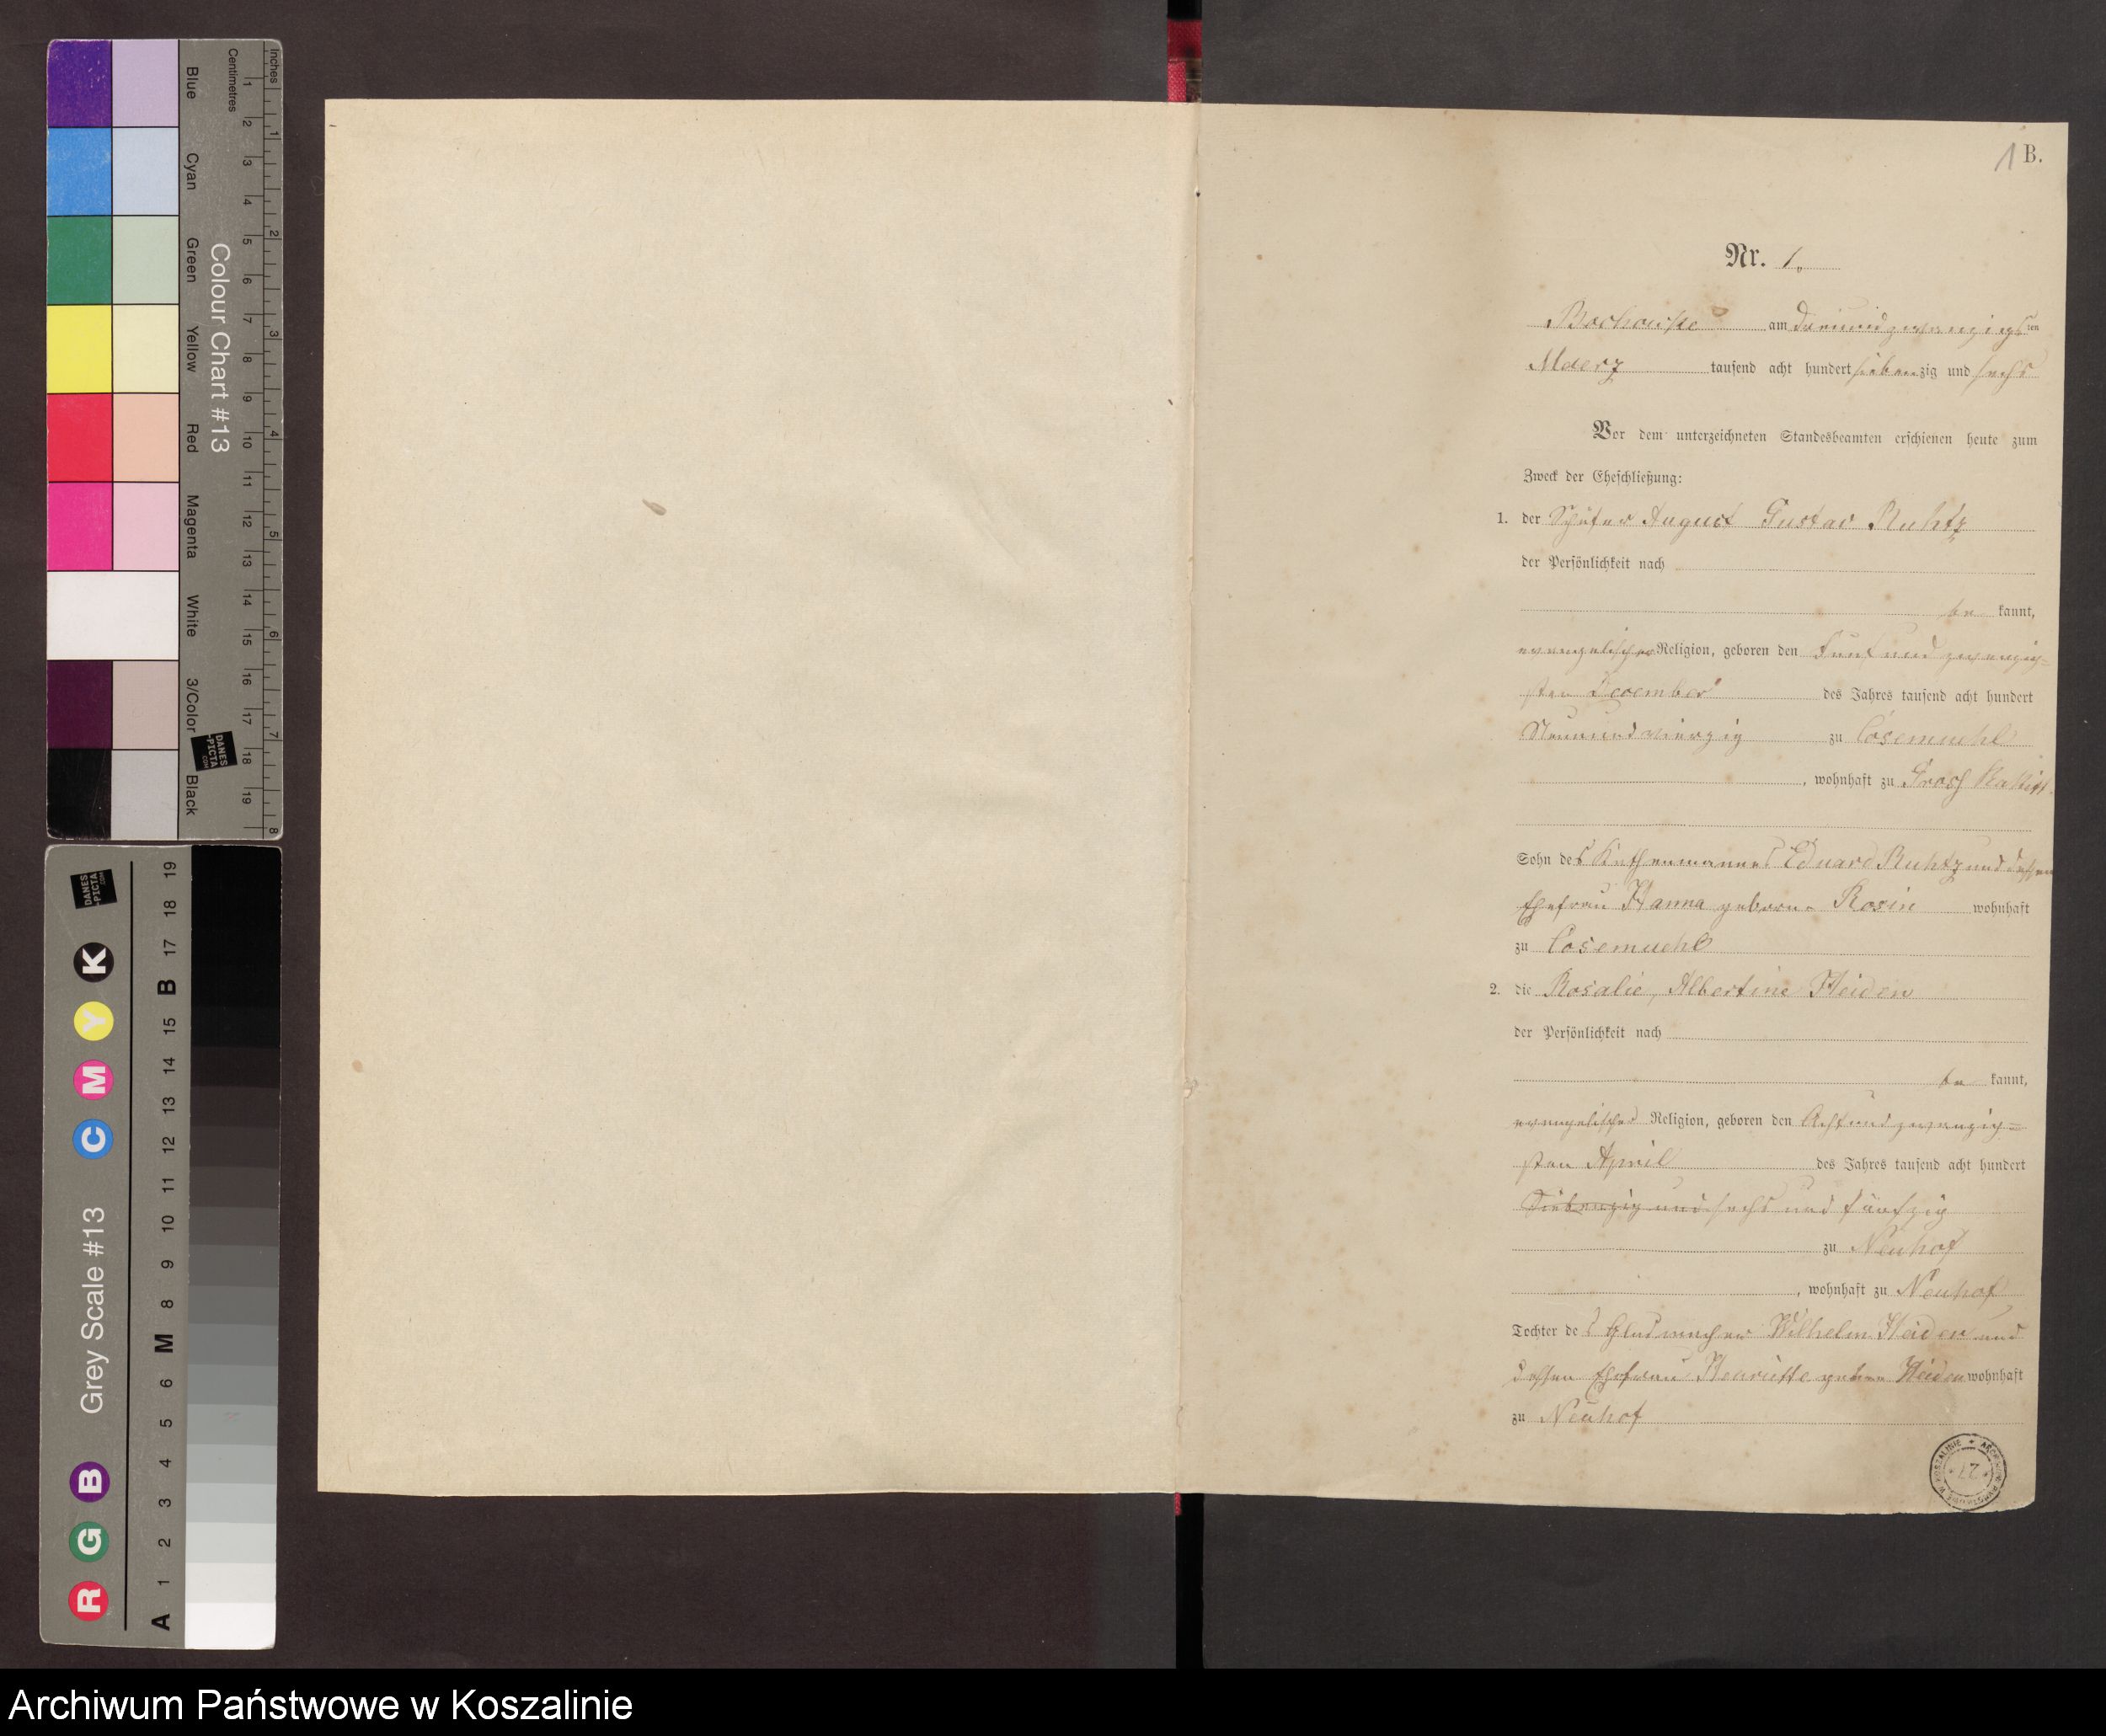 Inches
Centimetres
Colour Chart #13
Blue
Cyan
Green
Yellow
Red
Magenta
White
3/Color
Black
1 2 3 4 5 6 7 8 9 10 11 12 13 14 15 16 17 18 19
1 2 3 4 5 6 7 8
DANES
-PICTA
.COM
Grey Scale #13
R G B C M Y K
DANES
-PICTA
.COM
A 1 2 3 4 5 6 M 8 9 10 11 12 13 14 15 B 17 18 19
1 B.
Nr. 1.
am dreiundzwanzigsten
Maerz tausend acht hundert siebenzig und sechs
Vor dem unterzeichneten Standesbeamten erschienen heute zum
Zweck der Eheschließung:
1. der Schäfer August Gustav Ruhtz
der Persönlichkeit nach
be kannt,
evangelischer Religion, geboren den Fünf und zwanzig=
sten December des Jahres tausend acht hundert
Neunundvierzig zu Cosemuehl
, wohnhaft zu Gross
Sohn des Kathenmannes Eduard Ruhtz und dessen
Ehefrau Hanna geborne Rosin wohnhaft
zu Cosemuehl
2. die Rosalie, Albertine Heiden
der Persönlichkeit nach
be kannt,
evangelischer Religion, geboren den Acht und zwanzig=
sten April des Jahres tausend acht hundert
Siebenzig und sechs und fünfzig
zu Neuhof
, wohnhaft zu Neuhof
Tochter des Glasmacher Wilhelm Heiden und
dessen Ehefrau Henriette geborne Heiden wohnhaft
zu Neuhof
ARCHIWUM PAŃSTWOWE W KOSZALINIE
27
Archiwum Państwowe w Koszalinie